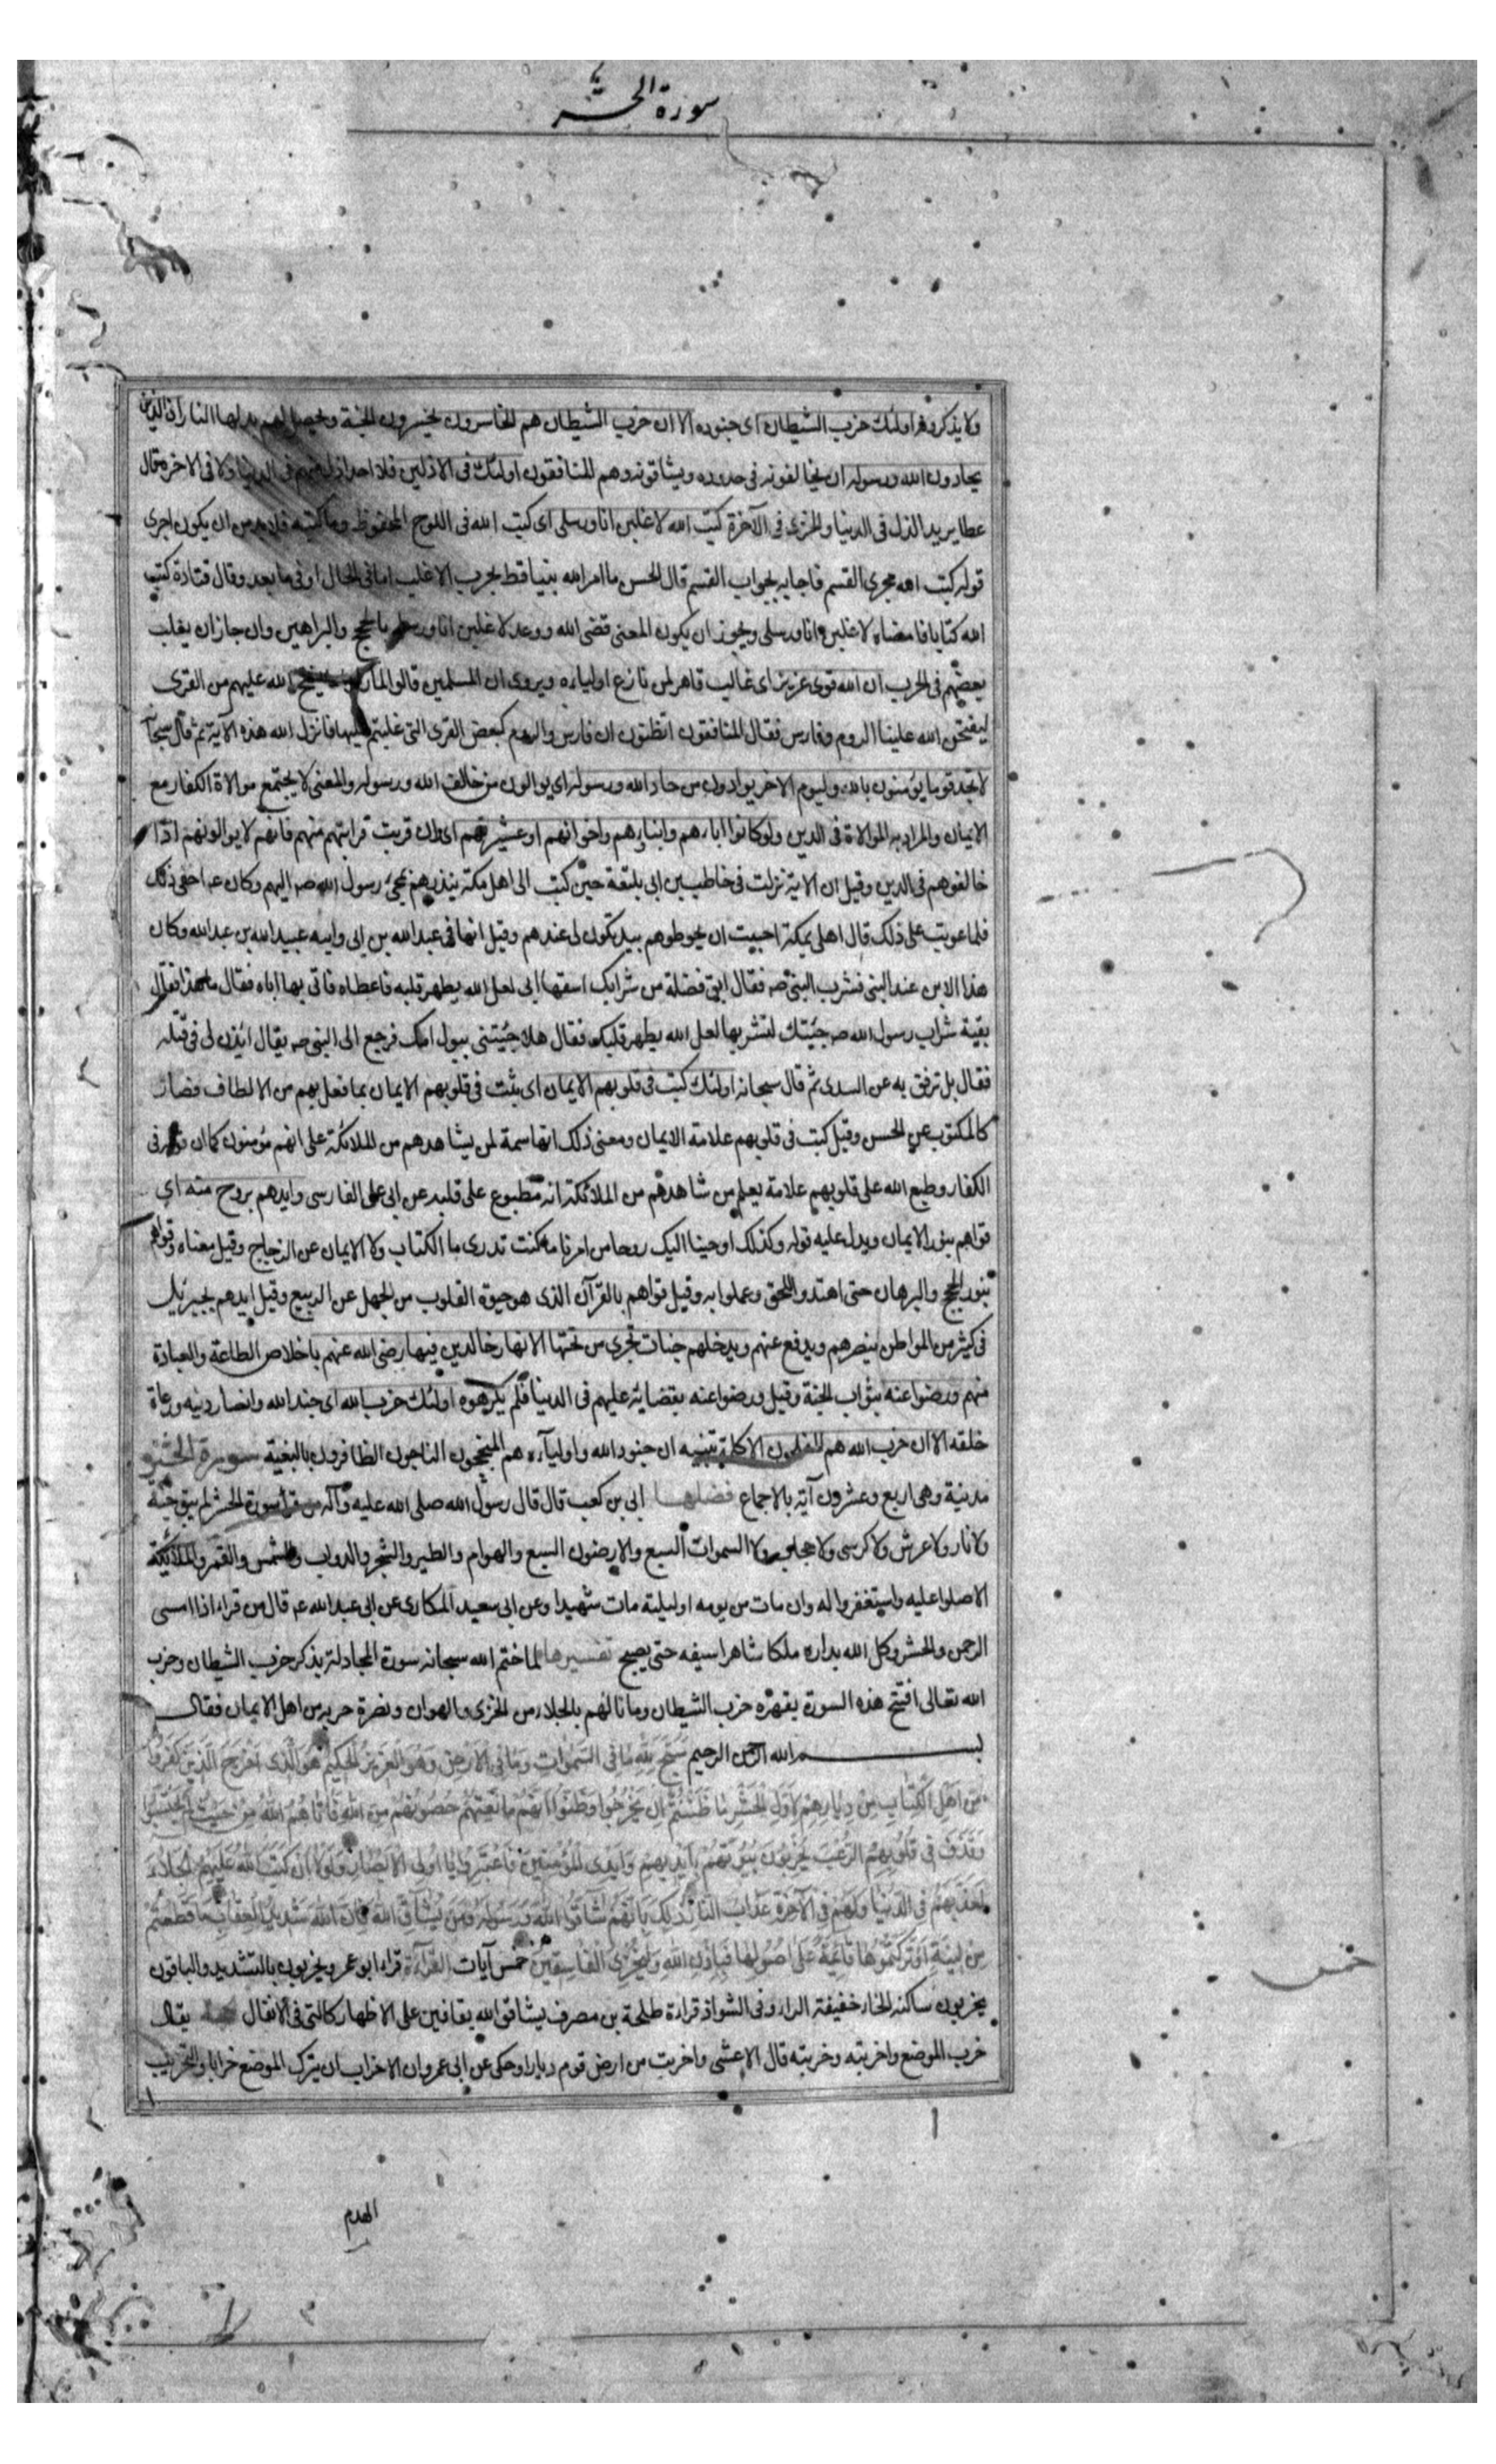 سورة الحشر
ولا يذكرونه اولئك حزب الشيطان اى جنوده الا ان حزب الشيطان هم الخاسرون يخسرون الجنة ويحصل لهم بدلها النار ان الذين
يحادون الله ورسوله اى يخالفونه فى حدوده ويشاقونه وهم المنافقون اولئك فى الاذلين فلا احد اذل منهم فى الدنيا ولا فى الاخرة قال
عطا يريد الذل فى الدنيا والخزى فى الآخرة كتب الله لاغلبن انا ورسلى اى كتب الله فى اللوح المحفوظ وما كتبه فلا بد من ان يكون اجرى
قوله كتب الله مجرى القسم فاجابه بجواب القسم قال الحسن ما امر الله نبيا قط بحرب الا غلب اما فى الحال او فى ما بعد وقال قتادة كتب
الله كتابا فامضاه لاغلبن انا ورسلى ويجوز ان يكون المعنى قضى الله ووعد لاغلبن انا ورسلى بالحجج والبراهين وان جاز ان يغلب
بعضهم فى الحرب ان الله قوى عزيز اى غالب قاهر لمن نازع اولياءه ويروى ان المسلمين قالوا لما راوا ما يفتح الله عليهم من القرى
ليفتحن الله علينا الروم وفارس فقال المنافقون اتظنون ان فارس والروم كبعض القرى التى غلبتم عليها فانزل الله هذه الآية ثم قال سبحانه
لا تجد قوما يؤمنون بالله واليوم الاخر يوادون من حاد الله ورسوله اى يوالون من خالف الله ورسوله والمعنى لا يجتمع موالاة الكفار مع
الايمان والمراد به الموالاة فى الدين ولو كانوا اباءهم وابناءهم واخوانهم او عشيرتهم اى وان قربت قرابتهم منهم فانهم لا يوالونهم اذا
خالفوهم فى الدين وقيل ان الاية نزلت فى حاطب بن ابى بلتعة حين كتب الى اهل مكة ينذرهم بمجىء رسول الله صم اليهم وكان عه اخفى ذلك
فلما عوتب على ذلك قال اهلى بمكة احببت ان يحوطوهم بيد تكون لى عندهم وقيل انها فى عبد الله بن ابى وابنه عبيد الله بن عبد الله وكان
هذا الابن عند النبى فشرب النبى صم فقال ابقى فضلة من شرابك اسقها ابى لعل الله يطهر قلبه فاعطاه فاتى بها اباه فقال ما هذا فقال
بقية شراب رسول الله صم جئتك لتشربها لعل الله يطهر قلبك فقال هلا جئتنى ببول امك فرجع الى النبى صم يقال ائذن لى فى قتله
فقال بل ترفق به عن السدى ثم قال سبحانه اولئك كتب فى قلوبهم الايمان اى يثبت فى قلوبهم الايمان بما فعل بهم من الالطاف فصار
كالمكتوب عن الحسن وقيل كتب فى قلوبهم علامة الايمان ومعنى ذلك انها سمة لمن يشاهدهم من الملائكة على انهم مؤمنون كما ان قوله فى
الكفار وطبع الله على قلوبهم علامة يعلم من شاهدهم من الملائكة انه مطبوع على قلبه عن ابى على الفارسى وايدهم بروح منه اى
قواهم بنور الايمان ويدل عليه قوله وكذلك اوحينا اليك روحا من امرنا ما كنت تدرى ما الكتاب ولا الايمان عن الزجاج وقيل معناه وقواهم
بنور الحجج والبرهان حتى اهتدوا للحق وعملوا به وقيل قواهم بالقرآن الذى هو حيوة القلوب من الجهل عن الربيع وقيل ايدهم بجبرئيل
فى كثير من المواطن ينصرهم ويدفع عنهم ويدخلهم جنات تجرى من تحتها الانهار خالدين فيها رضى الله عنهم باخلاص الطاعة والعبادة
منهم ورضوا عنه بثواب الجنة وقيل ورضوا عنه بقضائه عليهم فى الدنيا فلم يكرهوه اولئك حزب الله اى جند الله وانصار دينه ورعاة
خلقه الا ان حزب الله هم المفلحون الا كلمة تنبيه ان جنود الله واولياءه هم المنجحون الناجون الظافرون بالبغية سورة الحشر
مدنية وهى اربع وعشرون آية بالاجماع فضلها ابى بن كعب قال قال رسول الله صلى الله عليه وآله من قرا سورة الحشر لم يبق جنة
ولا نار ولا عرش ولا كرسى ولا حجاب ولا السموات السبع والارضون السبع والهوام والطير والشجر والدواب والشمس والقمر والملائكة
الا صلوا عليه واستغفروا له وان مات من يومه او ليلته مات شهيدا وعن ابى سعيد المكارى عن ابى عبد الله عه قال من قراء اذا امسى
الرحمن والحشر وكل الله بداره ملكا شاهرا سيفه حتى يصبح تفسيرها لما ختم الله سبحانه سورة المجادلة بذكر حزب الشيطان وحزب
الله تعالى افتتح هذه السورة بقهره حزب الشيطان وما نالهم بالجلاء من الخزى والهوان ونصرة حزبه من اهل الايمان فقال
بسم الله الرحمن الرحيم سَبَّحَ لِلَّهِ مَا فِى السَّمٰوَاتِ وَمَا فِى الْاَرْضِ وَهُوَ الْعَزِيزُ الْحَكِيمُ هُوَ الَّذِى اَخْرَجَ الَّذِينَ كَفَرُوا
مِنْ اَهْلِ الْكِتَابِ مِنْ دِيَارِهِمْ لِاَوَّلِ الْحَشْرِ مَا ظَنَنْتُمْ اَنْ يَخْرُجُوا وَظَنُّوا اَنَّهُمْ مَانِعَتُهُمْ حُصُونُهُمْ مِنَ اللهِ فَاَتَاهُمُ اللهُ مِنْ حَيْثُ لَمْ يَحْتَسِبُوا
وَقَذَفَ فِى قُلُوبِهِمُ الرُّعْبَ يُخْرِبُونَ بُيُوتَهُمْ بِاَيْدِيهِمْ وَاَيْدِى الْمُؤْمِنِينَ فَاعْتَبِرُوا يَا اُولِى الْاَبْصَارِ وَلَوْلَا اَنْ كَتَبَ اللهُ عَلَيْهِمُ الْجَلَاءَ
لَعَذَّبَهُمْ فِى الدُّنْيَا وَلَهُمْ فِى الْآخِرَةِ عَذَابُ النَّارِ ذٰلِكَ بِاَنَّهُمْ شَاقُّوا اللهَ وَرَسُولَهُ وَمَنْ يُشَاقِّ اللهَ فَاِنَّ اللهَ شَدِيدُ الْعِقَابِ مَا قَطَعْتُمْ
مِنْ لِينَةٍ اَوْ تَرَكْتُمُوهَا قَائِمَةً عَلَى اُصُولِهَا فَبِاِذْنِ اللهِ وَلِيُخْزِىَ الْفَاسِقِينَ خمس آيات القراءة قراء ابو عمرو يخربون بالتشديد والباقون
خمس
يخربون ساكنة الخاء خفيفة الراء وفى الشواذ قراءة طلحة بن مصرف يشاقق الله بقافين على الاظهار كالتى فى الانفال يقال
خرب الموضع واخربته وخربته قال الاعشى واخربت من ارض قوم ديارا وحكى عن ابى عمرو ان الاخراب ان يترك الموضع خرابا والتخريب
الهدم